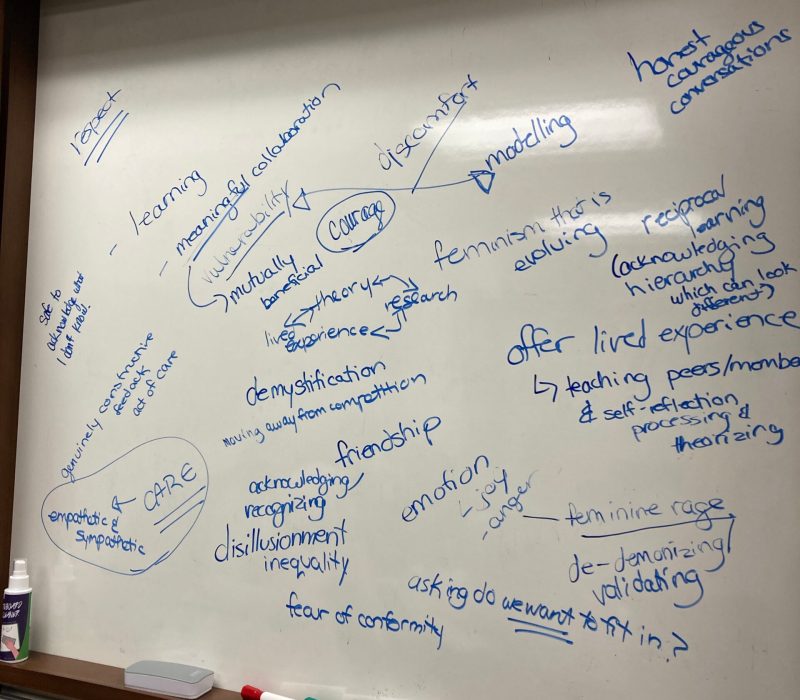 respect
- learning
- meaningful collaboration
vulnerability
mutually
beneficial
discomfort
modelling
honest
courageous
conversations
courage
theory
research
lived
experience
feminism that is
evolving
reciprocal
learning
(acknowledging
hierarchy
which can look
different)
safe to
acknowledge what
I don't know!
genuinely constructive
feedack
act of care
CARE
empathetic &
sympathetic
demystification
moving away from competition
friendship
acknowledging
recognizing
disillusionment
inequality
fear of conformity
offer lived experience
teaching peers/membe
& self-reflection
processing &
theorizing
emotion
- joy
- anger
feminine rage
de-demonizing/
validating
asking do we want to fit in?